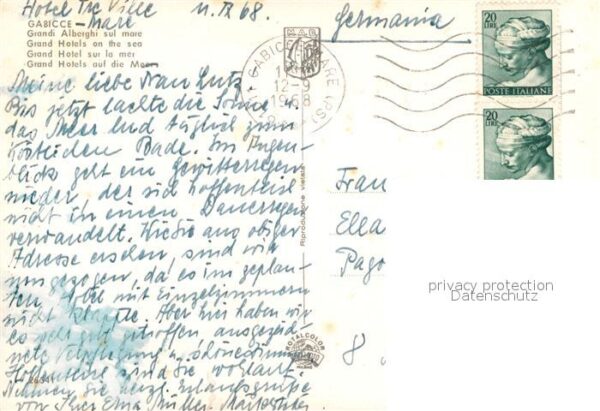 Hotel Tre Ville 11. IX 68.
Germania
GABICCE-Mare
Grandi Alberghi sul mare
Grand Hotels on the sea
Grand Hotels sur la mer
Grand Hotels auf die Meer
GABICCE MARE
12-9
1968
20 LIRE
POSTE ITALIANE
20 LIRE
Meine liebe Frau Lutz
Bis jetzt lachte die Sonne u.
das Meer lud täglich zum
köstlichen Bade. Im Augen-
blick geht ein Gewitterregen
nieder, der sich hoffentlich
nicht in einen Dauerregen
verwandelt. Wie Sie aus obiger
Adresse ersehen, sind wir
umgezogen, da es im geplan-
ten Hotel mit Einzelzimmern
nicht klappte. Aber hier haben wir
es sehr gut getroffen, ausgezeich-
nete Verpflegung u. schöne Zimmer
Hoffentlich sind Sie wohlauf.
Nehmen Sie herzl. Urlaubsgrüße
von Ihrer Müller
Riproduzione vietata
Frau
Ella
Pago
8
privacy protection
Datenschutz
ROYALCOLOR